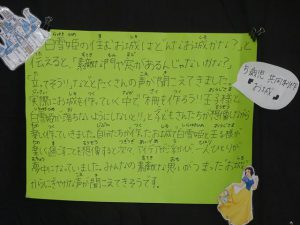 「白雪姫の住むお城はどんなお城かな?」と
伝えると、「素敵な門や窓があるんじゃないかな?」
立ってそう!」などとたくさんの声が聞こえてきました。
実際にお城を作っていく中で「橋を作ろう!」「王子様と
白雪姫が落ちないようにしないと!」と子どもたちが想像しながら
楽しく作っていました。自分たちが作ったお城で白雪姫と王子様が
楽しく過ごすことを想像すると
夢中になっていました。みんなの素敵な思いがつまったお城
からにぎやかな声が聞こえてきそうです。
5歳児 共同制作
"お城"